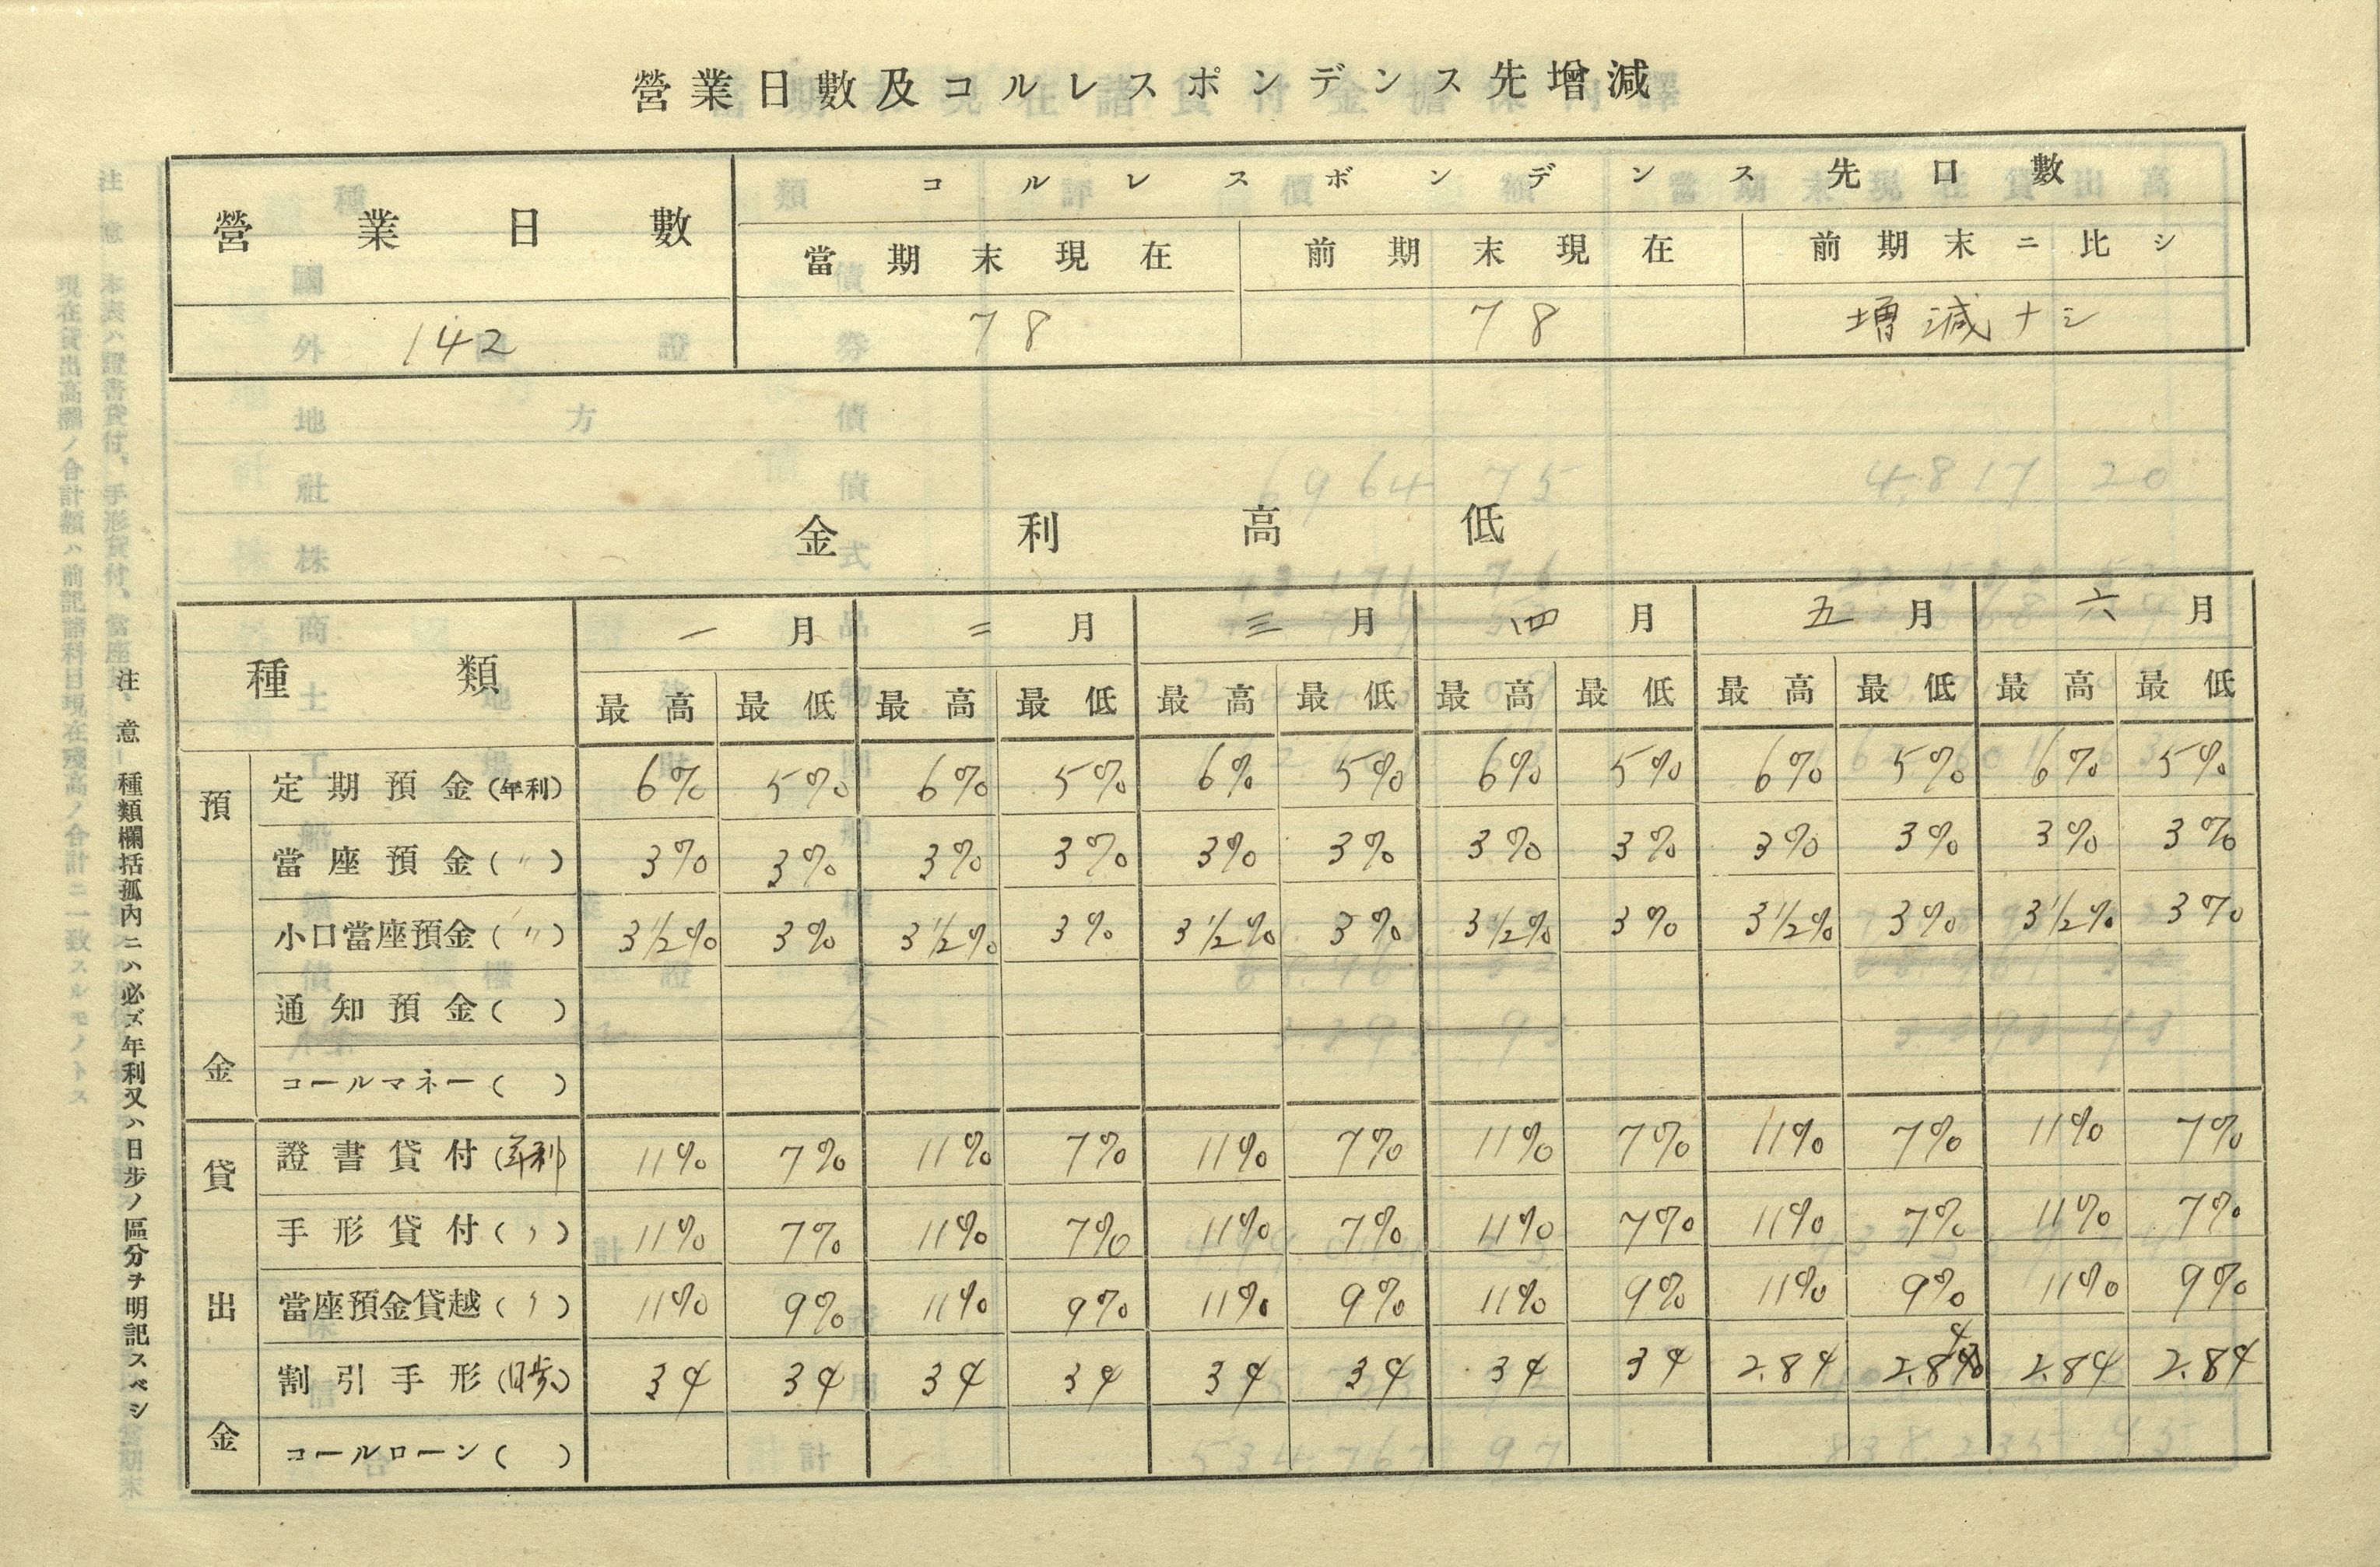 營業日數及コルレスポンデンス先增減
營業日數 コルレスポンデンス先口數
當期末現在 前期末現在 前期末ニ比シ
142 78 78 増減ナシ
金利高低
種類 一月 二月 三月 四月 五月 六月
最高 最低 最高 最低 最高 最低 最高 最低 最高 最低 最高 最低
預金
定期預金(年利) 6% 5% 6% 5% 6% 5% 6% 5% 6% 5% 6% 5%
當座預金(〃) 3% 3% 3% 3% 3% 3% 3% 3% 3% 3% 3% 3%
小口當座預金(〃) 3½% 3% 3½% 3% 3½% 3% 3½% 3% 3½% 3% 3½% 3%
通知預金( )
コールマネー( )
貸出金
證書貸付(年利) 11% 7% 11% 7% 11% 7% 11% 7% 11% 7% 11% 7%
手形貸付(〃) 11% 7% 11% 7% 11% 7% 11% 7% 11% 7% 11% 7%
當座預金貸越(〃) 11% 9% 11% 9% 11% 9% 11% 9% 11% 9% 11% 9%
割引手形(日歩) 3タ 3タ 3タ 3タ 3タ 3タ 3タ 3タ 2.8タ 2.8タ 2.8タ 2.8タ
コールローン( )
注意 種類欄括弧内ニハ必ズ年利又ハ日步ノ區分ヲ明記スベシ